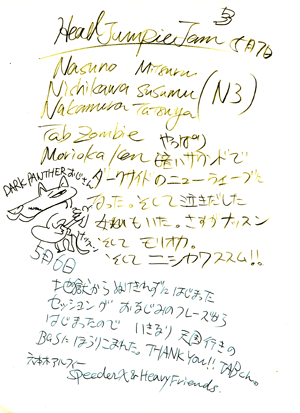 Heal Jumpie Jam 5月7日
Nasuno Mitsuru
Nichikawa Susumu (N3)
Nakamura Tatsuya
Tab Zombie やっぱり
Morioka Ken 暗いサウンドで
DARK PANTHER おじさん
ダークサイドのニューウェーブと
なった。そして泣きだした
もいた。さすがナッスン
そして モリオカ。
そして ニシカワススム!!
5月6日
からぬけきれずにはじまった
セッションが おなじみのフレーズから
はじまったので いきなり 天国行きの
BUSにほうりこまれた。THANK YOU!! TABCh。
六本木アルフィー
Speeder X & Heavy Friends.